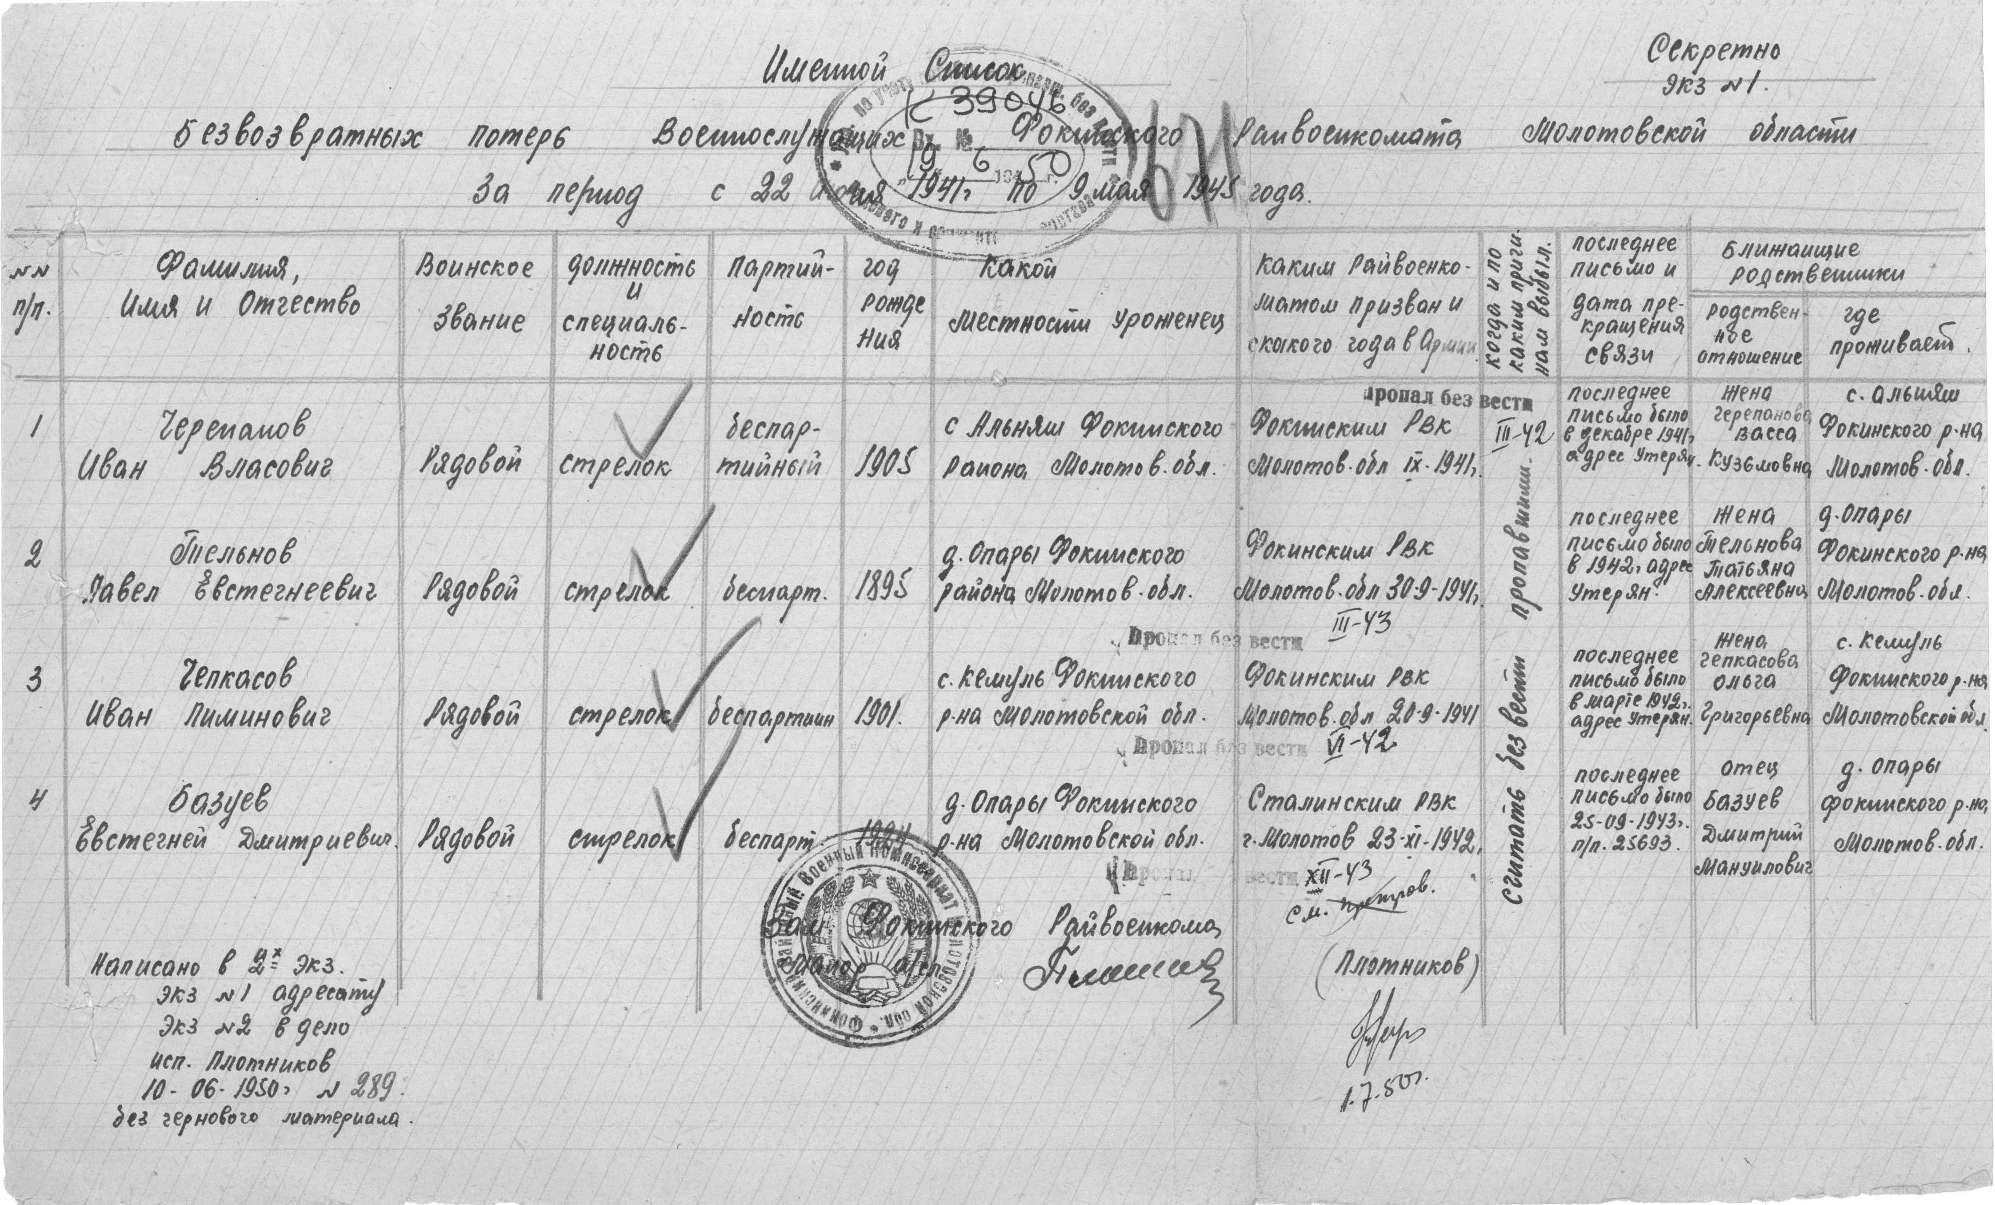 Секретно
экз № 1.
Именной Список
Безвозвратных потерь Военнослужащих Фокинского Райвоенкомата Молотовской области
За период с 22 июня 1941г по 9 мая 1945 года.
К 39046
Вх. №
19 6 1950 г.
671
№№ п/п.
Фамилия, Имя и Отчество
Воинское Звание
должность и специаль-
ность
партий-
ность
год рожде
ния
какой местности уроженец
каким Райвоенко-
матом призван и
скакого года в Армии
когда и по
каким причи-
нам выбыл.
последнее
письмо и
дата пре-
кращения
связи
Ближайщие
родственники
родствен-
ное
отношение
где
проживает.
1
Черепанов
Иван Власович
Рядовой
стрелок
беспар-
тийный
1905
с Альняш Фокинского
района Молотов. обл.
Фокинским РВК
Молотов. обл IX-1941г.
Пропал без вести
III-42
последнее
письмо было
в декабре 1941г
адрес утерян.
жена
Черепанова
Васса
Кузьмовна
с. альняш
Фокинского р-на
Молотов. обл.
2
Тельнов
Павел Евстегнеевич
Рядовой
стрелок
беспарт.
1895
д. Опары Фокинского
района Молотов. обл.
Фокинским РВК
Молотов. обл 30-9-1941г.
Пропал без вести III-43
последнее
письмо было
в 1942г адрес
утерян.
жена
Тельнова
Татьяна
Алексеевна
д. Опары
Фокинского р-на
Молотов. обл.
3
Чепкасов
Иван Пиминович
Рядовой
стрелок
беспартиин
1901.
с. Кемуль Фокинского
р-на Молотовской обл.
Фокинским РВК
Молотов. обл 20-9-1941
Пропал без вести VI-42
последнее
письмо было
в марте 1942г.
адрес утерян.
жена
Чепкасова
Ольга
Григорьевна
с. Кемуль
Фокинского р-на
Молотовской обл
4
Базуев
Евстегней Дмитриевич.
Рядовой
стрелок
беспарт.
1924
д. Опары Фокинского
р-на Молотовской обл.
Сталинским РВК
г. Молотов 23-XI-1942г
Пропал вести XII-43
См.
последнее
письмо было
25-09-1943г.
п/п. 25693.
отец
Базуев
Дмитрий
Мануилович
д. Опары
Фокинского р-на
Молотов. обл.
Считать без вести пропавшими.
Зам Фокинского Райвоенкома
Майор а/сл.
(Плотников)
Фокинский Районный Военный Комиссариат Молотовской обл.
1.7.50г.
Написано в 2х экз.
экз № 1 адресату
экз № 2 в дело
исп. Плотников
10-06-1950г № 289.
без чернового материала.